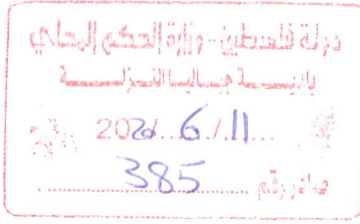 دولة فلسطين - وزارة الحكم المحلي
بلديـــة جباليا النزلـــة
2020 6 / 11
صادر رقم 385